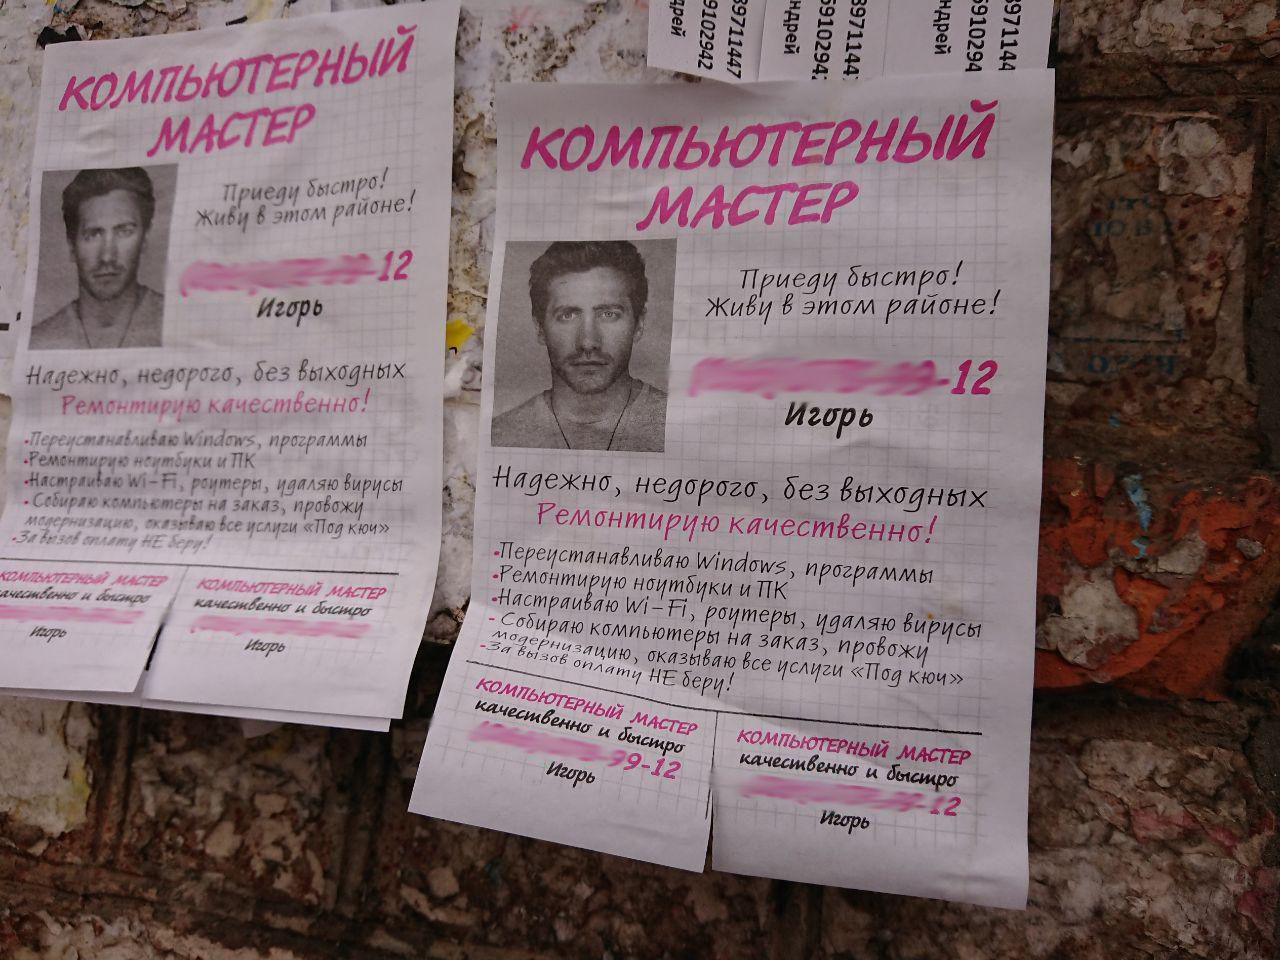 КОМПЬЮТЕРНЫЙ
МАСТЕР
Приеду быстро!
Живу в этом районе!
-12
Игорь
Надежно, недорого, без выходных
Ремонтирую качественно!
•Переустанавливаю Windows, программы
•Ремонтирую ноутбуки и ПК
•Настраиваю Wi-Fi, роутеры, удаляю вирусы
- Собираю компьютеры на заказ, провожу
модернизацию, оказываю все услуги «Под кюч»
-За вызов оплату НЕ беру!
КОМПЬЮТЕРНЫЙ МАСТЕР
качественно и быстро
Игорь
КОМПЬЮТЕРНЫЙ МАСТЕР
качественно и быстро
Игорь
КОМПЬЮТЕРНЫЙ
МАСТЕР
Приеду быстро!
Живу в этом районе!
-12
Игорь
Надежно, недорого, без выходных
Ремонтирую качественно!
•Переустанавливаю Windows, программы
•Ремонтирую ноутбуки и ПК
•Настраиваю Wi-Fi, роутеры, удаляю вирусы
- Собираю компьютеры на заказ, провожу
модернизацию, оказываю все услуги «Под кюч»
-За вызов оплату НЕ беру!
КОМПЬЮТЕРНЫЙ МАСТЕР
качественно и быстро
99-12
Игорь
КОМПЬЮТЕРНЫЙ МАСТЕР
качественно и быстро
12
Игорь
дрей
69102942
89711447
ндрей
6910294
8971144
ндрей
6910294
8971144